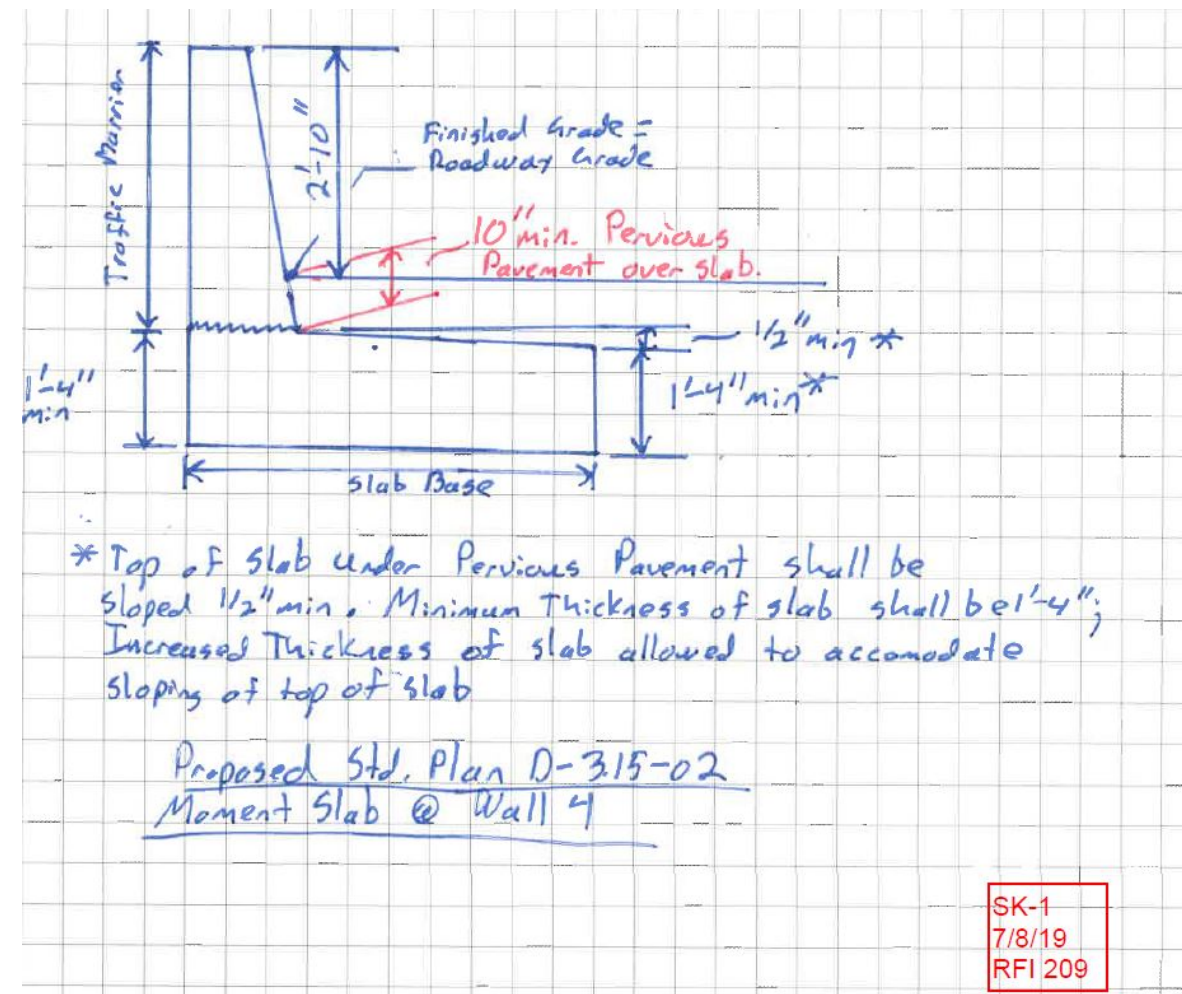 Traffic Barrier
2'-10"
Finished Grade =
Roadway Grade
10" min. Pervious
Pavement over slab.
1/2" min *
1'-4" min*
1'-4"
min
Slab Base
* Top of Slab Under Pervious Pavement shall be
sloped 1/2" min. Minimum Thickness of slab shall be 1'-4";
Increased Thickness of slab allowed to accomodate
sloping of top of slab
Proposed Std. Plan D-3.15-02
Moment Slab @ Wall 4
SK-1
7/8/19
RFI 209